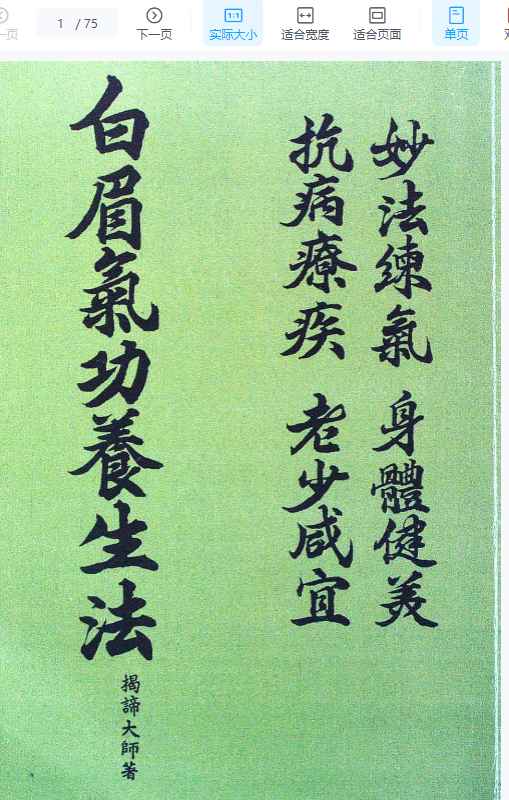 一页
1 / 75
下一页
实际大小
适合宽度
适合页面
单页
妙法練氣 身體健美
抗病療疾 老少咸宜
白眉氣功養生法
揭諦大師著